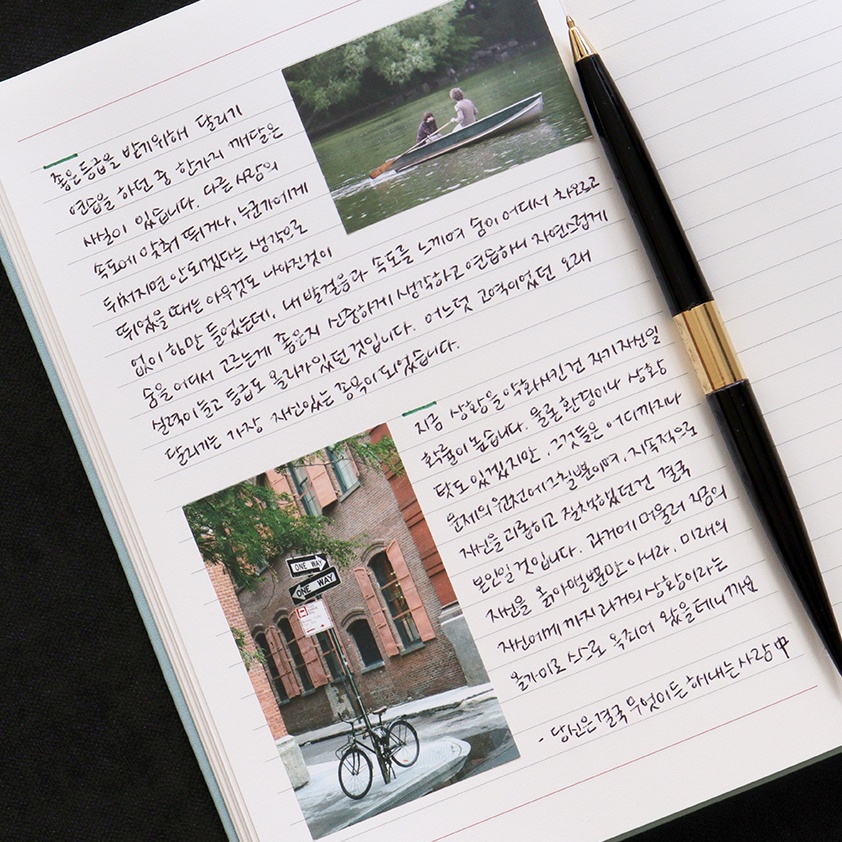 좋은 등급을 받기위해 달리기
연습을 하던 중 한가지 깨달은
사실이 있습니다. 다른 사람의
속도에 맞춰 뛰거나, 누군가에게
뒤쳐지면 안되겠다는 생각으로
뛰었을 때는 아무것도 나아진것이
없이 힘만 들었는데, 내 발걸음과 속도를 느끼며 숨이 어디서 차오르고
숨을 어디서 고르는게 좋은지 신중하게 생각하고 연습하니 자연스럽게
실력이 늘고 등급도 올라가있던 것입니다. 어느덧 고역이었던 오래
달리기는 가장 자신있는 종목이 되었습니다.
지금 상황을 악화시킨건 자기자신일
확률이 높습니다. 물론 환경이나 상황
탓도 있겠지만, 그것들은 어디까지나
문제의 원천에 그칠뿐이며, 지속적으로
자신을 괴롭히고 질책했던건 결국
본인일 것입니다. 과거에 머물러 지금의
자신을 옭아맬뿐만 아니라, 미래의
자신에게 까지 과거의 상황이라는
올가미로 스스로 옥죄어 왔을테니까요
- 당신은 결국 무엇이든 해내는 사람 中
ONE WAY
ONE WAY